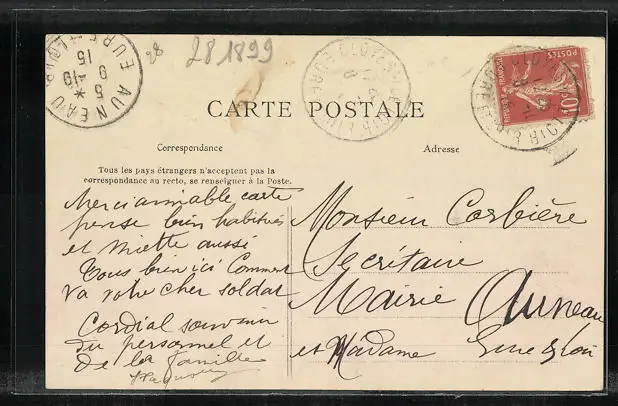 28 28 1899
AUNEAU
EURE-&-LOIR
5 * 10
9
15
POSTES
10
CARTE POSTALE
Correspondance
Adresse
Tous les pays étrangers n'acceptent pas la
correspondance au recto, se renseigner à la Poste.
Merci aimable carte
pense bien habitués
et Miette aussi
Tous bien ici Comment
va votre cher soldat
Cordial souvenir
du personnel et
De la famille
Monsieur Corbière
Secrétaire
Mairie Auneau
et Madame Eure & Loir